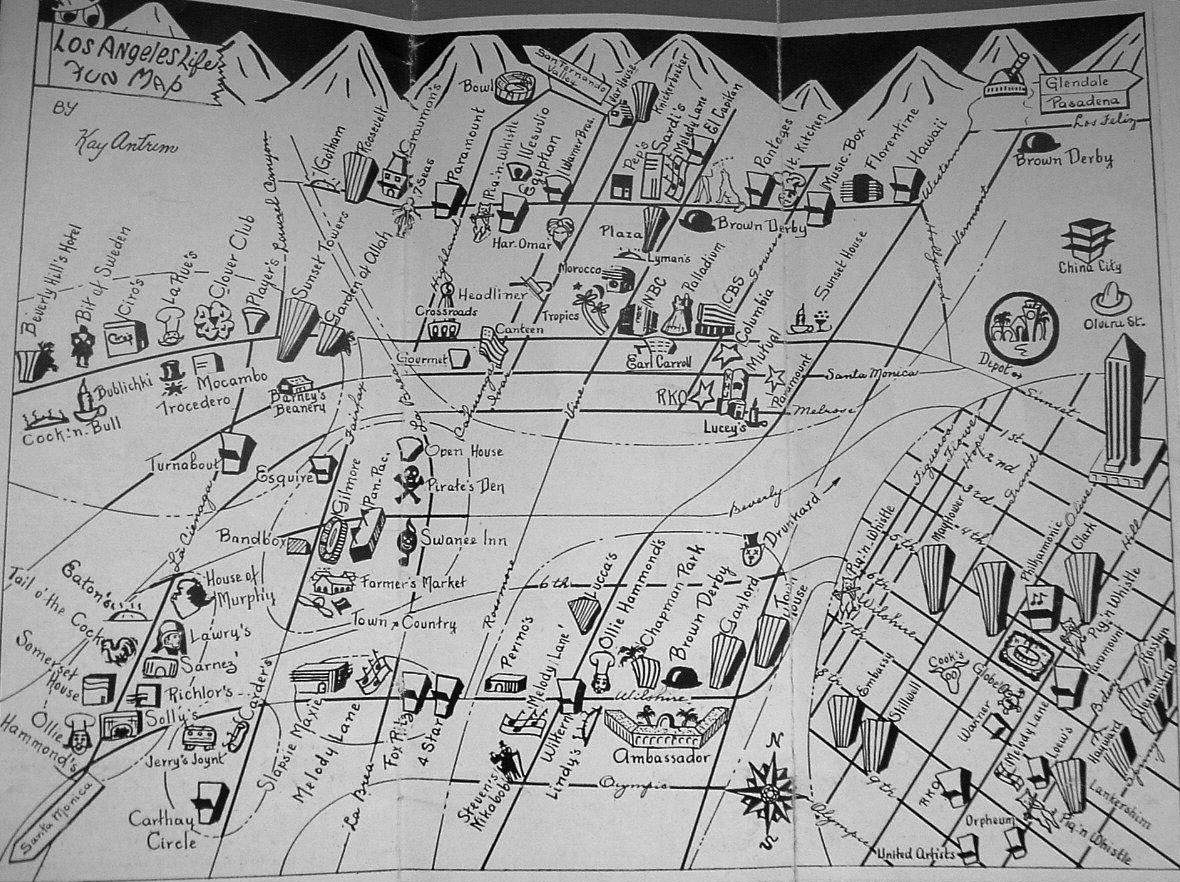 Los Angeles Life
Fun Map
BY
Kay Antrim
Bowl
San Fernando
Valley
Glendale
Pasadena
Los Feliz
Brown Derby
D'Gotham
Roosevelt
Grauman's
7 Seas
Paramount
Pig 'n Whistle
Vesuvio
Egyptian
Warner Bros.
Har-Omar
Knickerbocker
Pep's
Swardi's
Melody Lane
El Capitan
Pantages
It. Kitchen
Music-Box
Florentine
Hawaii
Western
Vermont
Hollywood
Brown Derby
Plaza
Lyman's
China City
Olvera St.
Depot
Beverly Hill's Hotel
Bit of Sweden
Ciro's
La Rue's
Clover Club
Player's
Laurel Canyon
Sunset Towers
Garden of Allah
Highland
Headliner
Crossroads
Canteen
Gourmet
Morocco
Tropics
NBC
Palladium
CBS
Gower
Columbia
Mutual
Sunset House
Earl Carroll
RKO
Paramount
Lucey's
Santa Monica
Melrose
Sunset
Cock 'n Bull
Bublichki
Trocedero
Mocambo
Barney's
Beanery
Fairfax
La Brea
Cahuenga
Vine
Turnabout
Esquire
La Cienaga
Open House
Pirate's Den
Gilmore
Pan-Pac.
Bandbox
Swanee Inn
Farmer's Market
Town & Country
Beverly
Drunkard
6th
Rossmore
Tail o' the Cock
Eaton's
House of
Murphy
Lawry's
Sarnez'
Somerset
House
Richlor's
Solly's
Ollie
Hammond's
Jerry's Joynt
Carder's
Santa Monica
Carthay
Circle
Slapsie Maxie
Melody Lane
La Brea
Fox Ritz
4 Star
Perino's
Melody Lane
Wiltern
Lindy's
Steven's
Mkabob
Lucca's
Ollie Hammond's
Chapman Park
Brown Derby
Gaylord
Town
House
Wilshire
Ambassador
Olympic
N
Olympic
Figueroa
Flower
Hope
Grand
Olive
Hill
1st
2nd
3rd
4th
5th
6th
Wilshire
7th
8th
9th
Pig 'n Whistle
Mayflower
Philharmonic
Clark
Pig 'n Whistle
Paramount
Rosslyn
Alexandria
Bdway
Spring
Embassy
Stillwell
Cook's
Globe
Warner
Melody Lane
Loew's
Hayward
Lankershim
RKO
Orpheum
Pig 'n Whistle
United Artists